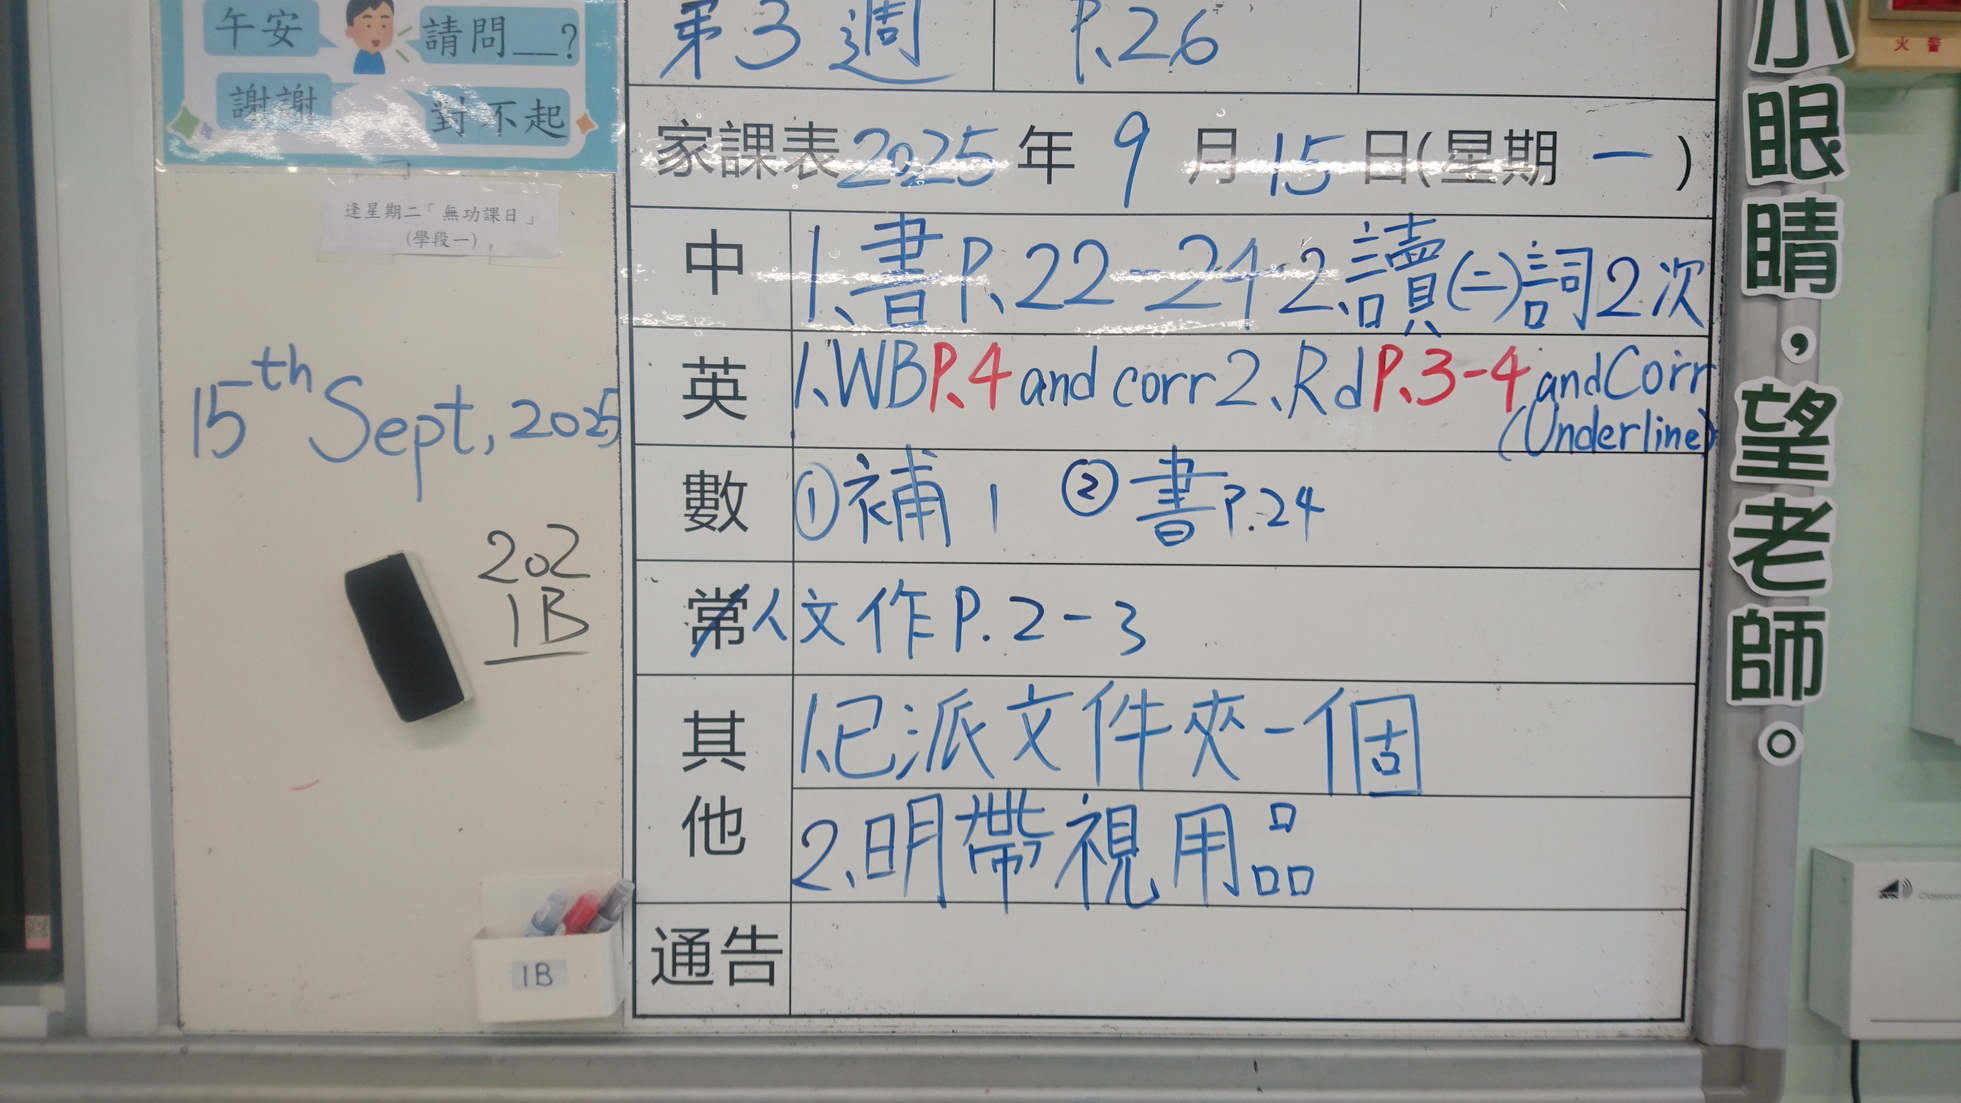 午安
請問__?
謝謝
對不起
逢星期二「無功課日」
(學段一)
15th Sept, 2025
202
1B
1B
第3週
P.26
家課表2025年9月15日(星期一)
中
1.書P.22-24 2.讀(二)詞2次
英
1.WBP.4 and corr 2.Rd P.3-4 and Corr
(Underline)
數
①補1 ②書P.24
常人文作P.2-3
其他
1.已派文件夾一個
2.明帶視用品
通告
小眼睛,望老師。
火警